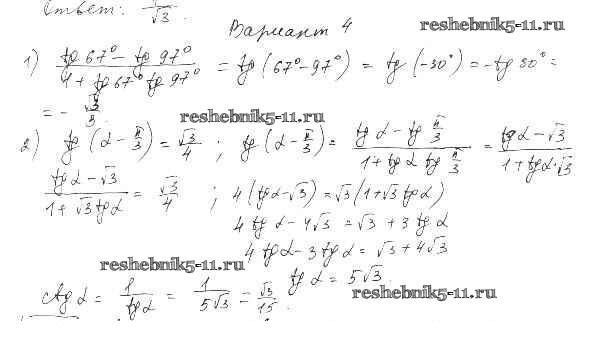 Ответ: 1/√3.
Вариант 4
reshebnik5-11.ru
1) (tg 67° - tg 97°)/(1 + tg 67° tg 97°) = tg (67° - 97°) = tg (-30°) = - tg 30° =
= - √3/3.
reshebnik5-11.ru
2) tg (α - π/3) = √3/4 ; tg (α - π/3) = (tg α - tg π/3)/(1 + tg α tg π/3) = (tg α - √3)/(1 + tg α · √3)
(tg α - √3)/(1 + √3 tg α) = √3/4 ; 4 (tg α - √3) = √3 (1 + √3 tg α)
4 tg α - 4√3 = √3 + 3 tg α
4 tg α - 3 tg α = √3 + 4√3
reshebnik5-11.ru
tg α = 5√3
ctg α = 1/tg α = 1/5√3 = √3/15.
reshebnik5-11.ru